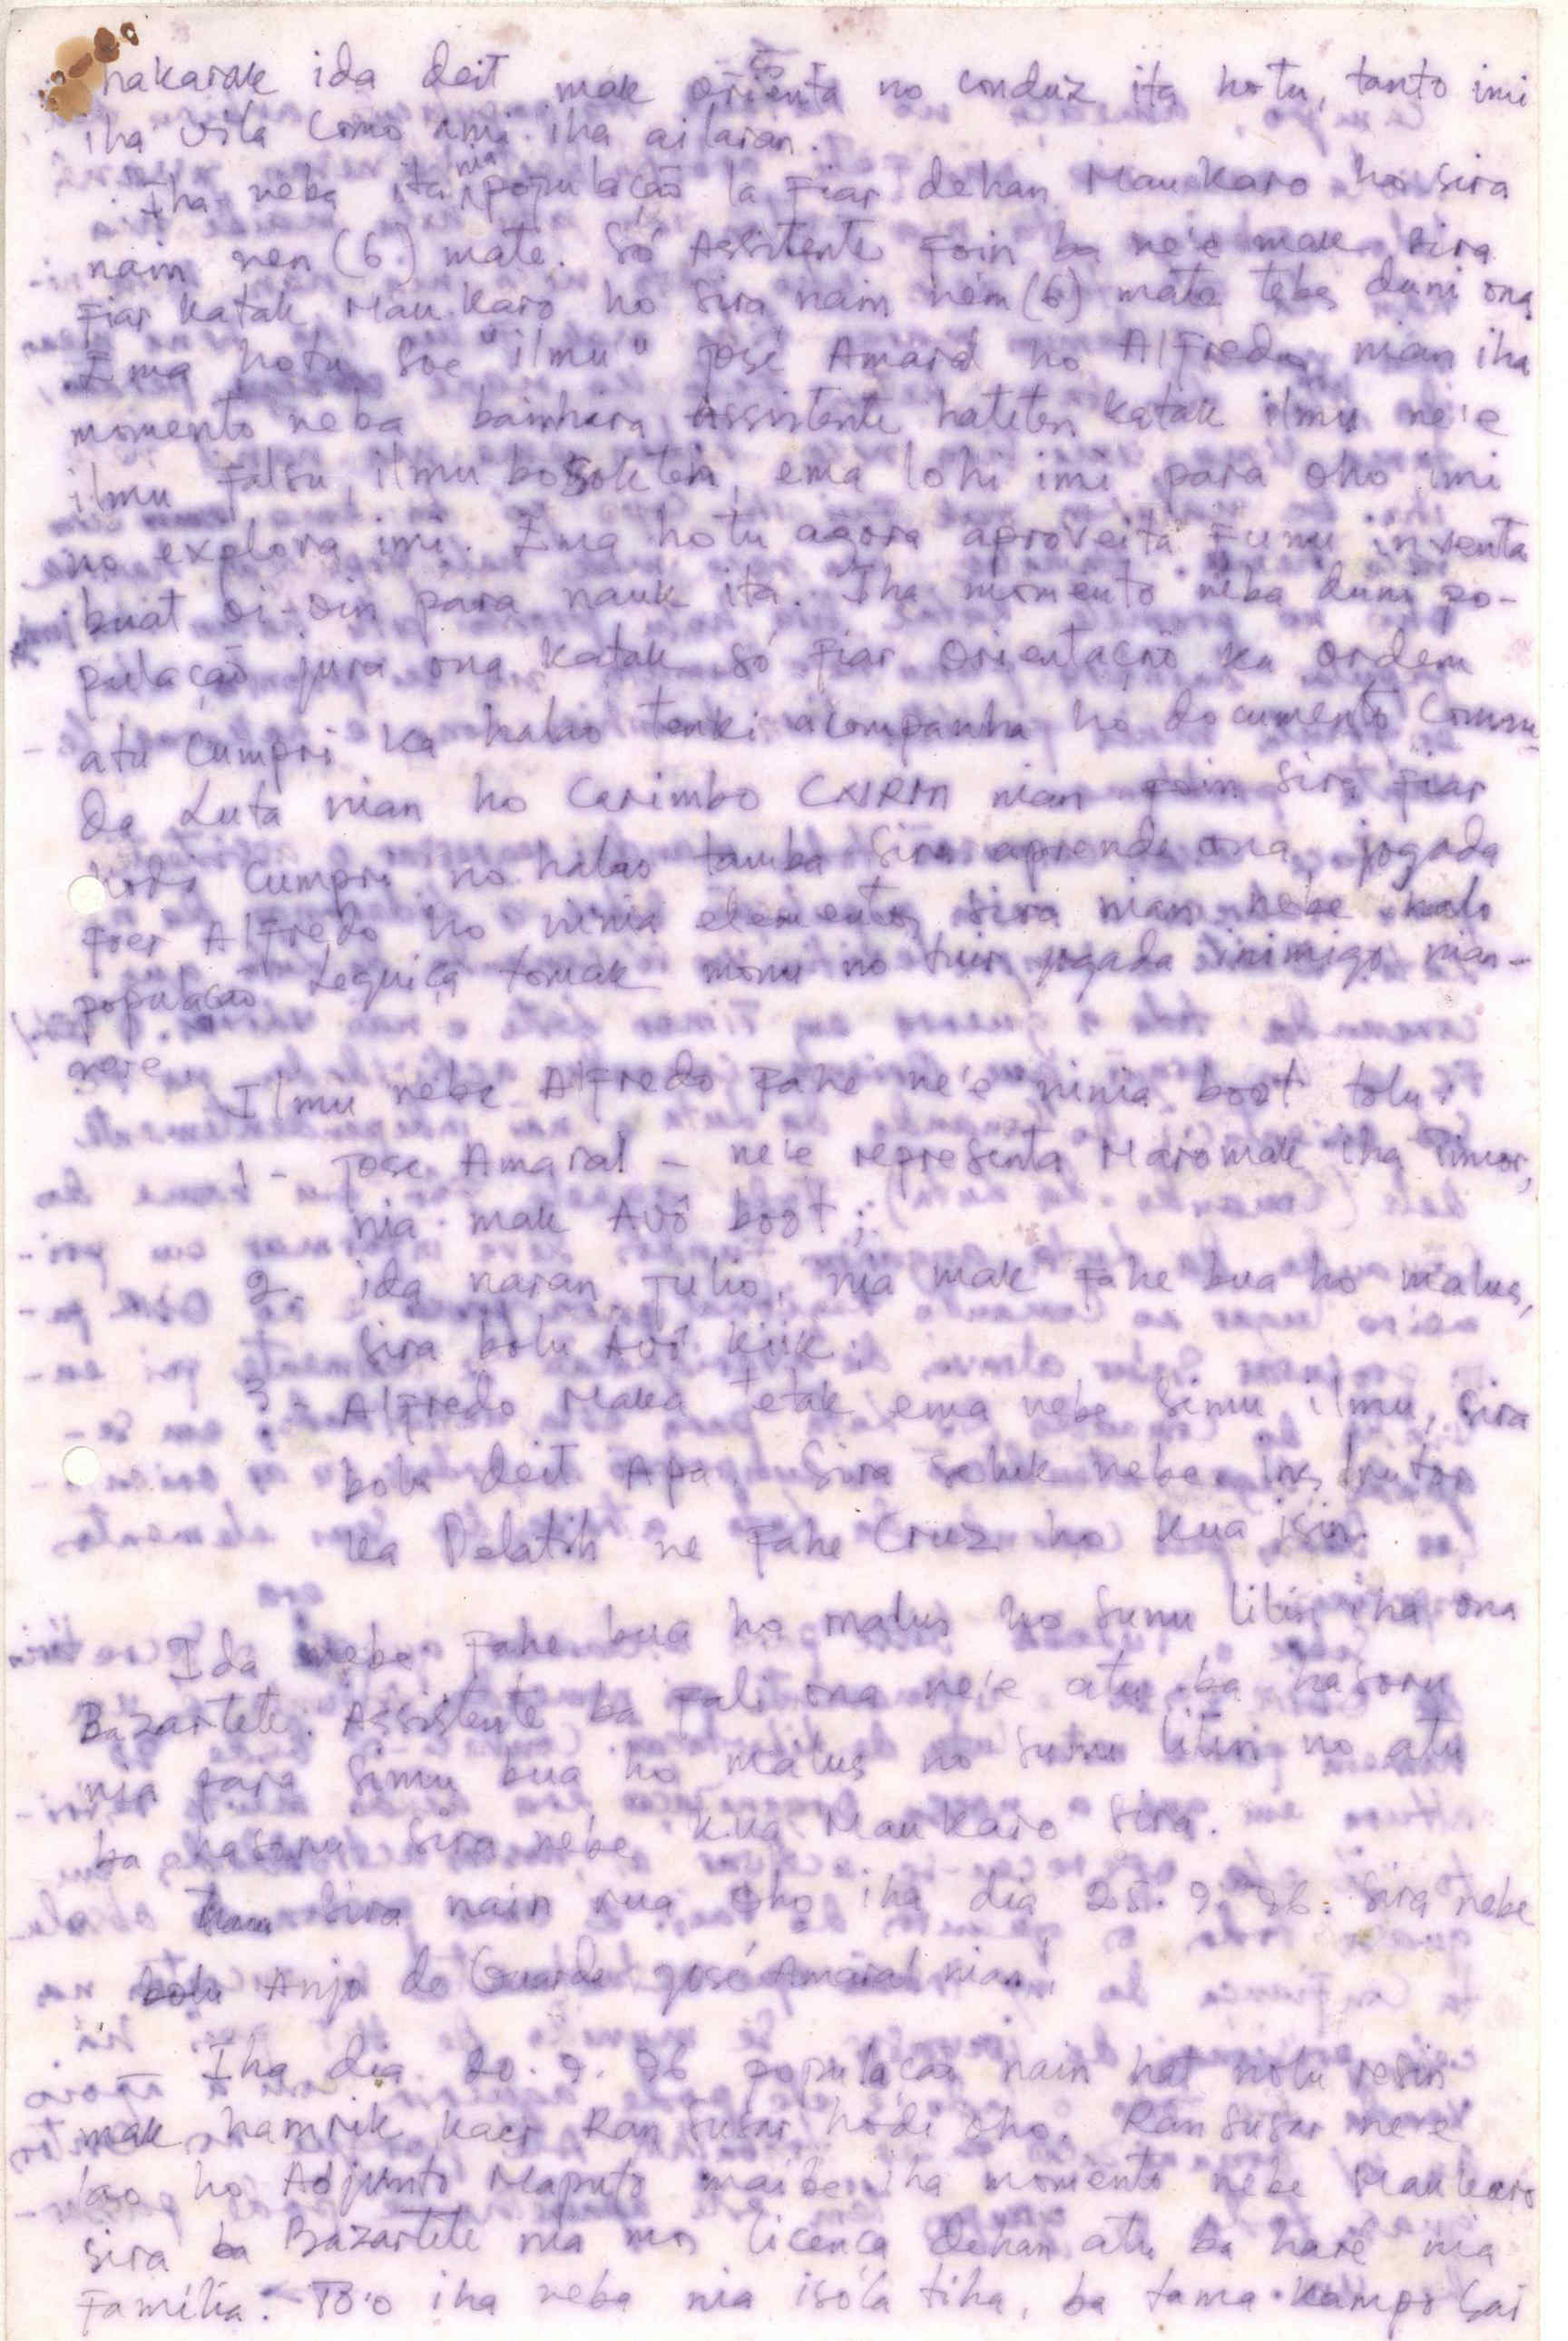 hakarak ida deit mak orienta no conduz ita hotu, tanto imi
iha vila como ami iha ai laran.
Iha neba ita nia população la fiar dehan Mau Karo ho sira
nain nen (6) mate. Só Assitente foin ba ne'e mak sira
fiar katak Mau Karo ho sira nain nem (6) mate tebes duni ona.
Ema hotu soe "ilmu" José Amaral no Alfredo nian iha
momento neba bainhira Assistente hateten katak ilmu ne'e
ilmu falsu, ilmu bosokten, ema lohi imi para oho imi
no explora imi. Ema hotu agora aproveita funu inventa
buat oi-oin para nauk ita. Iha momento neba duni po-
pulação jura ona katak só fiar orientação ka ordem
atu cumpri ka halao tenki acompanha ho documento Coman
da Luta nian ho Carimbo CNRM nian foin sira fiar
hodi cumpri no halao tamba sira aprende ona jogada
foer Alfredo ho ninia elementos sira nian nebe halo
população Lequiça tomak monu no tuir jogada inimigo nian
ne'e
Ilmu nebe Alfredo fahe ne'e ninia boot tolu:
1 - Jose Amaral - ne'e representa Maromak iha Timor,
nia mak Avô boot;
2 - ida naran Julio, nia mak fahe bua ho malus,
sira bolu Avô kiik.
3 - Alfredo Maka tetak ema nebe simu ilmu, sira
bolu deit Apa. Sira seluk nebe instrutor
ka Pelatih ne fahe Cruz ho kua isin.
Ida nebe fahe bua ho malus ho sunu lilin iha ona
Bazartete. Assistente ba fali ona ne'e atu ba hasoru
nia para simu bua ho malus no sunu lilin no atu
ba hasoru sira nebe kua Mau Karo sira.
sira nain rua oho iha dia 25.9.96. Sira nebe
bolu Anjo da Guarda José Amaral nian.
- Iha dia 20.9.96 população nain hat nolu resin
mak hamrik kaer Ran Susar hodi oho. Ran Susar ne'e
lao ho Adjunto Maputo maibe iha momento nebe Maukaro
sira ba Bazartete nia mos licença dehan atu ba haré nia
família. To'o iha neba nia isola tiha, ba tama kampo sai